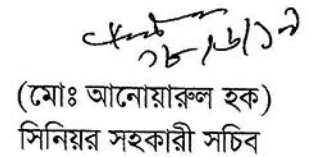 ১৮/৬/১৭
(মোঃ আনোয়ারুল হক)
সিনিয়র সহকারী সচিব